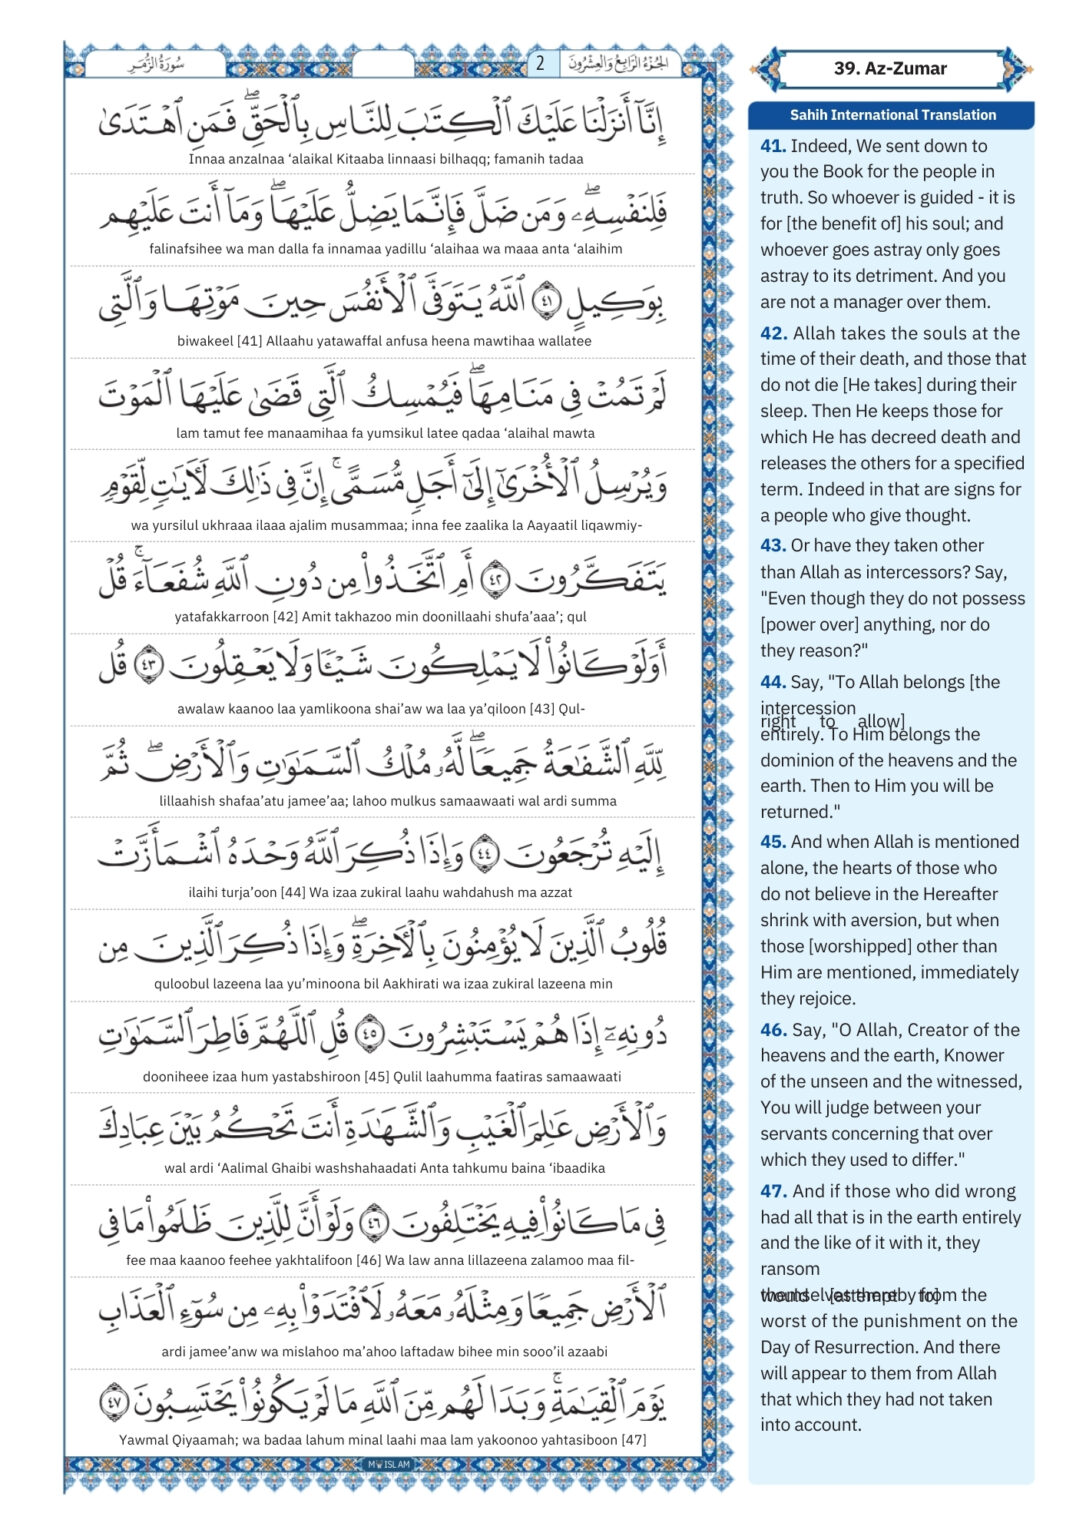 سُورَةُ الزُّمَرِ
2
الجُزْءُ الرَّابِعُ وَالعِشْرُونَ
إِنَّآ أَنزَلْنَا عَلَيْكَ ٱلْكِتَـٰبَ لِلنَّاسِ بِٱلْحَقِّ ۖ فَمَنِ ٱهْتَدَىٰ
Innaa anzalnaa ‘alaikal Kitaaba linnaasi bilhaqq; famanih tadaa
فَلِنَفْسِهِۦ ۖ وَمَن ضَلَّ فَإِنَّمَا يَضِلُّ عَلَيْهَا ۖ وَمَآ أَنتَ عَلَيْهِم
falinafsihee wa man dalla fa innamaa yadillu ‘alaihaa wa maaa anta ‘alaihim
بِوَكِيلٍ ٤١ ٱللَّهُ يَتَوَفَّى ٱلْأَنفُسَ حِينَ مَوْتِهَا وَٱلَّتِى
biwakeel [41] Allaahu yatawaffal anfusa heena mawtihaa wallatee
لَمْ تَمُتْ فِى مَنَامِهَا ۖ فَيُمْسِكُ ٱلَّتِى قَضَىٰ عَلَيْهَا ٱلْمَوْتَ
lam tamut fee manaamihaa fa yumsikul latee qadaa ‘alaihal mawta
وَيُرْسِلُ ٱلْأُخْرَىٰٓ إِلَىٰٓ أَجَلٍ مُّسَمًّى ۚ إِنَّ فِى ذَٰلِكَ لَـَٔايَـٰتٍ لِّقَوْمٍ
wa yursilul ukhraaa ilaaa ajalim musammaa; inna fee zaalika la Aayaatil liqawmiy-
يَتَفَكَّرُونَ ٤٢ أَمِ ٱتَّخَذُوا۟ مِن دُونِ ٱللَّهِ شُفَعَآءَ ۚ قُلْ
yatafakkarroon [42] Amit takhazoo min doonillaahi shufa’aaa’; qul
أَوَلَوْ كَانُوا۟ لَا يَمْلِكُونَ شَيْـًٔا وَلَا يَعْقِلُونَ ٤٣ قُل
awalaw kaanoo laa yamlikoona shai’aw wa laa ya’qiloon [43] Qul-
لِّلَّهِ ٱلشَّفَـٰعَةُ جَمِيعًا ۖ لَّهُۥ مُلْكُ ٱلسَّمَـٰوَٰتِ وَٱلْأَرْضِ ۖ ثُمَّ
lillaahish shafaa’atu jamee’aa; lahoo mulkus samaawaati wal ardi summa
إِلَيْهِ تُرْجَعُونَ ٤٤ وَإِذَا ذُكِرَ ٱللَّهُ وَحْدَهُ ٱشْمَأَزَّتْ
ilaihi turja’oon [44] Wa izaa zukiral laahu wahdahush ma azzat
قُلُوبُ ٱلَّذِينَ لَا يُؤْمِنُونَ بِٱلْـَٔاخِرَةِ ۖ وَإِذَا ذُكِرَ ٱلَّذِينَ مِن
quloobul lazeena laa yu’minoona bil Aakhirati wa izaa zukiral lazeena min
دُونِهِۦٓ إِذَا هُمْ يَسْتَبْشِرُونَ ٤٥ قُلِ ٱللَّهُمَّ فَاطِرَ ٱلسَّمَـٰوَٰتِ
dooniheee izaa hum yastabshiroon [45] Qulil laahumma faatiras samaawaati
وَٱلْأَرْضِ عَـٰلِمَ ٱلْغَيْبِ وَٱلشَّهَـٰدَةِ أَنتَ تَحْكُمُ بَيْنَ عِبَادِكَ
wal ardi ‘Aalimal Ghaibi washshahaadati Anta tahkumu baina ‘ibaadika
فِى مَا كَانُوا۟ فِيهِ يَخْتَلِفُونَ ٤٦ وَلَوْ أَنَّ لِلَّذِينَ ظَلَمُوا۟ مَا فِى
fee maa kaanoo feehee yakhtalifoon [46] Wa law anna lillazeena zalamoo maa fil-
ٱلْأَرْضِ جَمِيعًا وَمِثْلَهُۥ مَعَهُۥ لَٱفْتَدَوْا۟ بِهِۦ مِن سُوٓءِ ٱلْعَذَابِ
ardi jamee’anw wa mislahoo ma’ahoo laftadaw bihee min sooo’il azaabi
يَوْمَ ٱلْقِيَـٰمَةِ ۚ وَبَدَا لَهُم مِّنَ ٱللَّهِ مَا لَمْ يَكُونُوا۟ يَحْتَسِبُونَ ٤٧
Yawmal Qiyaamah; wa badaa lahum minal laahi maa lam yakoonoo yahtasiboon [47]
39. Az-Zumar
Sahih International Translation
41. Indeed, We sent down to
you the Book for the people in
truth. So whoever is guided - it is
for [the benefit of] his soul; and
whoever goes astray only goes
astray to its detriment. And you
are not a manager over them.
42. Allah takes the souls at the
time of their death, and those that
do not die [He takes] during their
sleep. Then He keeps those for
which He has decreed death and
releases the others for a specified
term. Indeed in that are signs for
a people who give thought.
43. Or have they taken other
than Allah as intercessors? Say,
"Even though they do not possess
[power over] anything, nor do
they reason?"
44. Say, "To Allah belongs [the
intercession
right to allow]
entirely. To Him belongs the
dominion of the heavens and the
earth. Then to Him you will be
returned."
45. And when Allah is mentioned
alone, the hearts of those who
do not believe in the Hereafter
shrink with aversion, but when
those [worshipped] other than
Him are mentioned, immediately
they rejoice.
46. Say, "O Allah, Creator of the
heavens and the earth, Knower
of the unseen and the witnessed,
You will judge between your
servants concerning that over
which they used to differ."
47. And if those who did wrong
had all that is in the earth entirely
and the like of it with it, they
ransom
would [attempt to]
themselves thereby from the
worst of the punishment on the
Day of Resurrection. And there
will appear to them from Allah
that which they had not taken
into account.